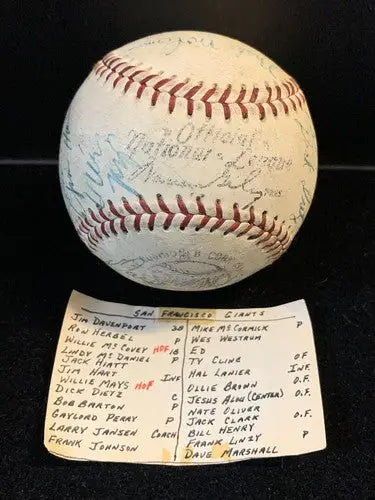 Official
National League
SAN FRANCISCO GIANTS
JIM DAVENPORT 3B
RON HERBEL P
WILLIE McCOVEY HOF 1B
LINDY McDANIEL P
JACK HIATT
JIM HART INF
WILLIE MAYS HOF
DICK DIETZ C
BOB BARTON P
GAYLORD PERRY P
LARRY JANSEN COACH
FRANK JOHNSON
MIKE McCORMICK P
WES WESTRUM
ED
TY CLINE O.F.
HAL LANIER INF.
OLLIE BROWN O.F.
JESUS ALOU (CENTER) O.F.
NATE OLIVER
JACK CLARK O.F.
BILL HENRY
FRANK LINZY P
DAVE MARSHALL